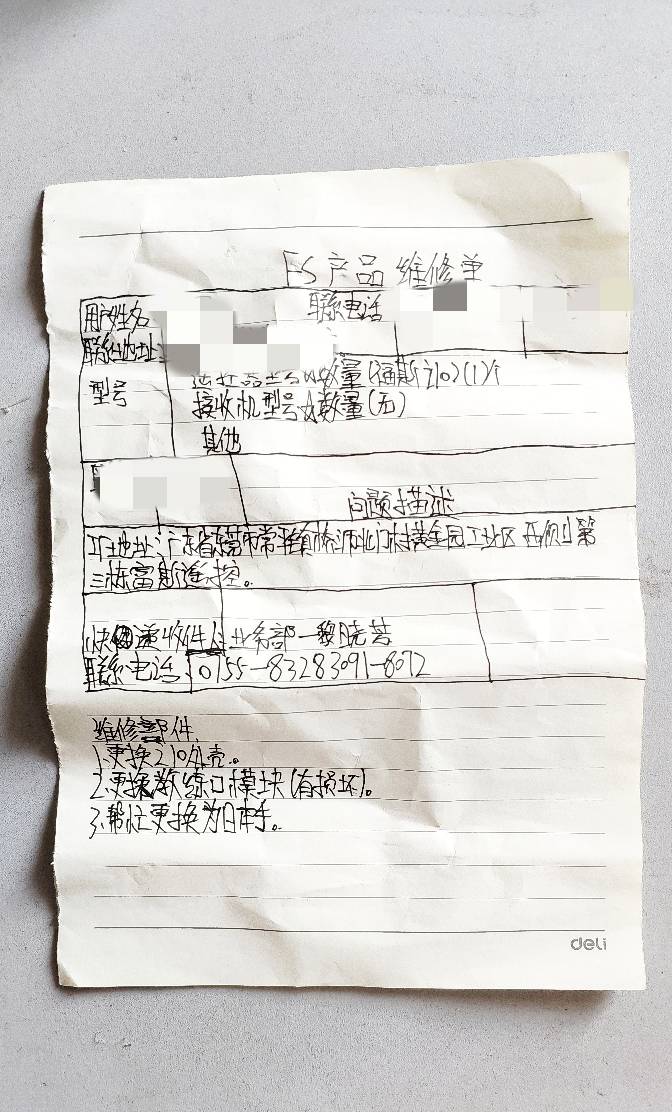 FS产品维修单
用户姓名 联系电话
联系地址:
型号 数量(福斯i10)(1)个
接收机型号数量(无)
其他
问题描述
地址:广东省东莞市常平镇 工业区西侧第
三栋富斯遥控。
快递收件人业务部-黎晓芸
联系电话:0755-83283091-8072
维修部件
1.更换210外壳。
2.更换教练口模块(有损坏)。
3.帮忙更换为日本手。
deli